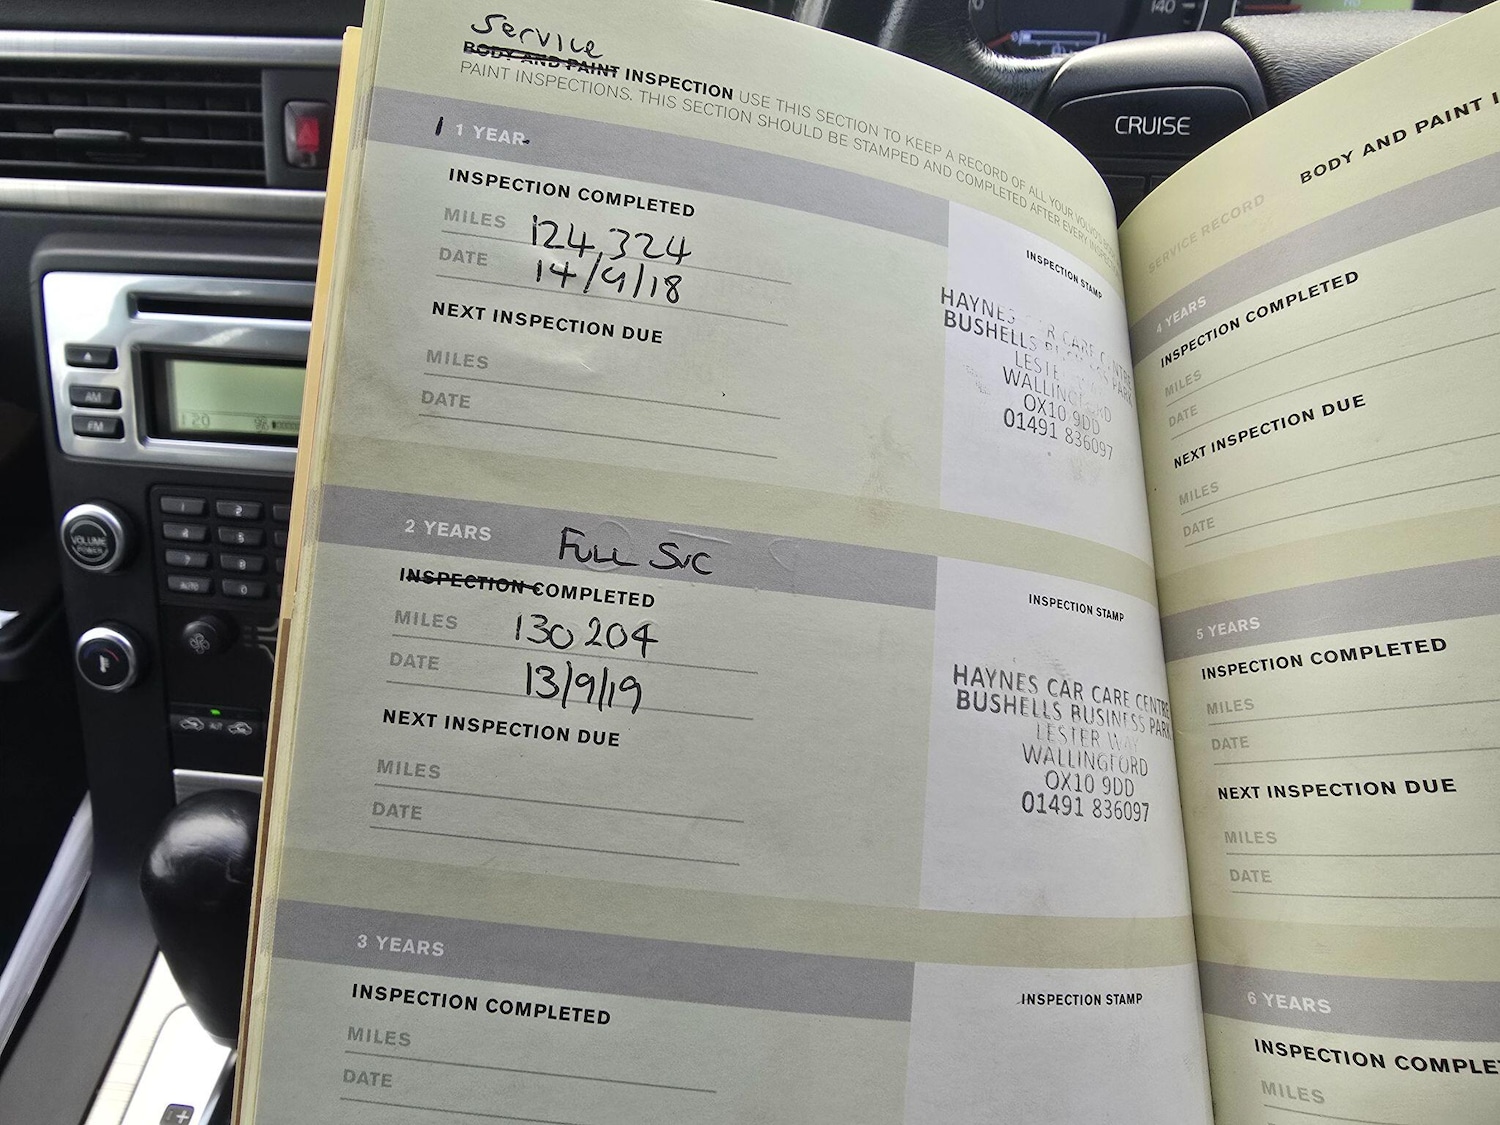 Service
BODY AND PAINT INSPECTION USE THIS SECTION TO KEEP A RECORD OF ALL YOUR VOLVO'S BODY
PAINT INSPECTIONS. THIS SECTION SHOULD BE STAMPED AND COMPLETED AFTER EVERY
1 YEAR
INSPECTION COMPLETED
MILES 124,324
DATE 14/9/18
NEXT INSPECTION DUE
MILES
DATE
INSPECTION STAMP
HAYNES CAR CARE CENTRE
BUSHELLS BUSINESS PARK
LESTER WAY
WALLINGFORD
OX10 9DD
01491 836097
2 YEARS FULL SVC
INSPECTION COMPLETED
MILES 130 204
DATE 13/9/19
NEXT INSPECTION DUE
MILES
DATE
INSPECTION STAMP
HAYNES CAR CARE CENTRE
BUSHELLS BUSINESS PARK
LESTER WAY
WALLINGFORD
OX10 9DD
01491 836097
3 YEARS
INSPECTION COMPLETED
MILES
DATE
INSPECTION STAMP
SERVICE RECORD
BODY AND PAINT
4 YEARS
INSPECTION COMPLETED
MILES
DATE
NEXT INSPECTION DUE
MILES
DATE
5 YEARS
INSPECTION COMPLETED
MILES
DATE
NEXT INSPECTION DUE
MILES
DATE
6 YEARS
INSPECTION COMPLE
MILES
CRUISE
140
AM
FM
VOLUME
1 2
4 5
7 8
AUTO 0
AUT